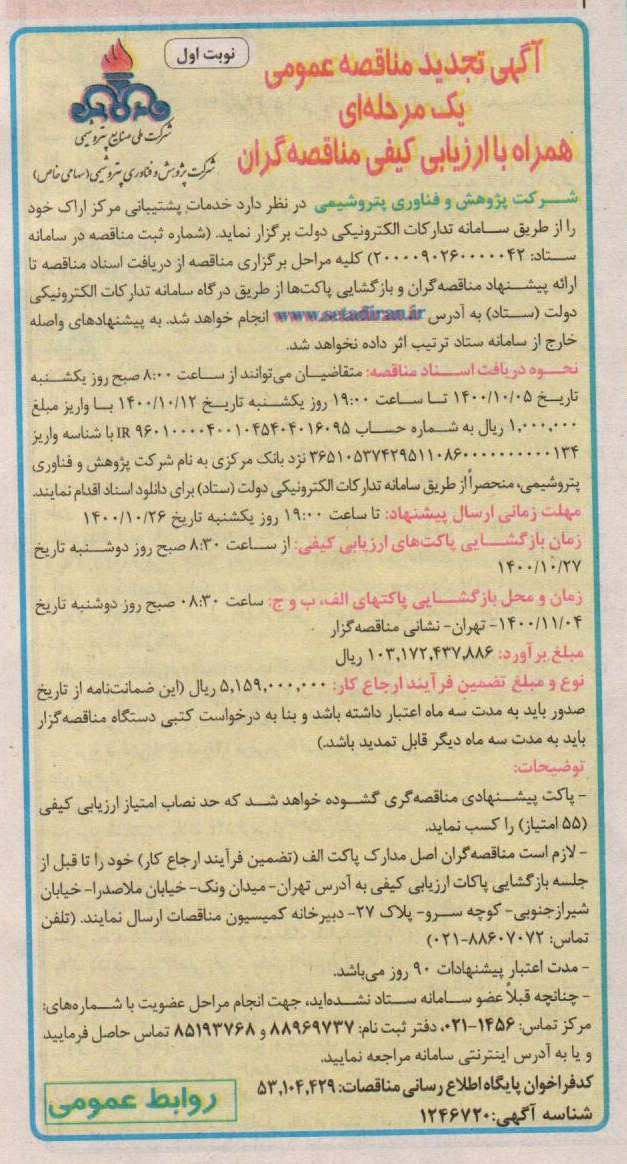 نوبت اول
آگهی تجدید مناقصه عمومی
یک مرحله‌ای
همراه با ارزیابی کیفی مناقصه گران
شرکت ملی صنایع پتروشیمی
شرکت پژوهش و فناوری پتروشیمی (سهامی خاص)
شرکت پژوهش و فناوری پتروشیمی در نظر دارد خدمات پشتیبانی مرکز اراک خود
را از طریق سامانه تدارکات الکترونیکی دولت برگزار نماید. (شماره ثبت مناقصه در سامانه
ستاد: ۲۰۰۰۰۹۰۲۶۰۰۰۰۰۴۲) کلیه مراحل برگزاری مناقصه از دریافت اسناد مناقصه تا
ارائه پیشنهاد مناقصه‌گران و بازگشایی پاکت‌ها از طریق درگاه سامانه تدارکات الکترونیکی
دولت (ستاد) به آدرس www.setadiran.ir انجام خواهد شد. به پیشنهادهای واصله
خارج از سامانه ستاد ترتیب اثر داده نخواهد شد.
نحوه دریافت اسناد مناقصه: متقاضیان می‌توانند از ساعت ۸:۰۰ صبح روز یکشنبه
تاریخ ۱۴۰۰/۱۰/۰۵ تا ساعت ۱۹:۰۰ روز یکشنبه تاریخ ۱۴۰۰/۱۰/۱۲ با واریز مبلغ
۱,۰۰۰,۰۰۰ ریال به شماره حساب IR ۹۶۰۱۰۰۰۰۴۰۰۱۰۴۵۴۰۴۰۱۶۰۹۵ با شناسه واریز
۳۶۵۱۰۵۳۷۴۲۹۵۱۱۰۸۶۰۰۰۰۰۰۰۰۰۰۱۳۴ نزد بانک مرکزی به نام شرکت پژوهش و فناوری
پتروشیمی، منحصراً از طریق سامانه تدارکات الکترونیکی دولت (ستاد) برای دانلود اسناد اقدام نمایند.
مهلت زمانی ارسال پیشنهاد: تا ساعت ۱۹:۰۰ روز یکشنبه تاریخ ۱۴۰۰/۱۰/۲۶
زمان بازگشایی پاکت‌های ارزیابی کیفی: از ساعت ۸:۳۰ صبح روز دوشنبه تاریخ
۱۴۰۰/۱۰/۲۷
زمان و محل بازگشایی پاکتهای الف، ب و ج: ساعت ۰۸:۳۰ صبح روز دوشنبه تاریخ
۱۴۰۰/۱۱/۰۴- تهران- نشانی مناقصه‌گزار
مبلغ برآورد: ۱۰۳,۱۷۲,۴۳۷,۸۸۶ ریال
نوع و مبلغ تضمین فرآیند ارجاع کار: ۵,۱۵۹,۰۰۰,۰۰۰ ریال (این ضمانت‌نامه از تاریخ
صدور باید به مدت سه ماه اعتبار داشته باشد و بنا به درخواست کتبی دستگاه مناقصه‌گزار
باید به مدت سه ماه دیگر قابل تمدید باشد.)
توضیحات:
- پاکت پیشنهادی مناقصه‌گری گشوده خواهد شد که حد نصاب امتیاز ارزیابی کیفی
(۵۵ امتیاز) را کسب نماید.
- لازم است مناقصه‌گران اصل مدارک پاکت الف (تضمین فرآیند ارجاع کار) خود را تا قبل از
جلسه بازگشایی پاکات ارزیابی کیفی به آدرس تهران- میدان ونک- خیابان ملاصدرا- خیابان
شیرازجنوبی- کوچه سرو- پلاک ۲۷- دبیرخانه کمیسیون مناقصات ارسال نمایند. (تلفن
تماس: ۸۸۶۰۷۰۷۲-۰۲۱)
- مدت اعتبار پیشنهادات ۹۰ روز می‌باشد.
- چنانچه قبلاً عضو سامانه ستاد نشده‌اید، جهت انجام مراحل عضویت با شماره‌های:
مرکز تماس: ۱۴۵۶-۰۲۱، دفتر ثبت نام: ۸۸۹۶۹۷۳۷ و ۸۵۱۹۳۷۶۸ تماس حاصل فرمایید
و یا به آدرس اینترنتی سامانه مراجعه نمایید.
کدفراخوان پایگاه اطلاع رسانی مناقصات: ۵۳,۱۰۴,۴۲۹
شناسه آگهی: ۱۲۴۶۷۲۰
روابط عمومی